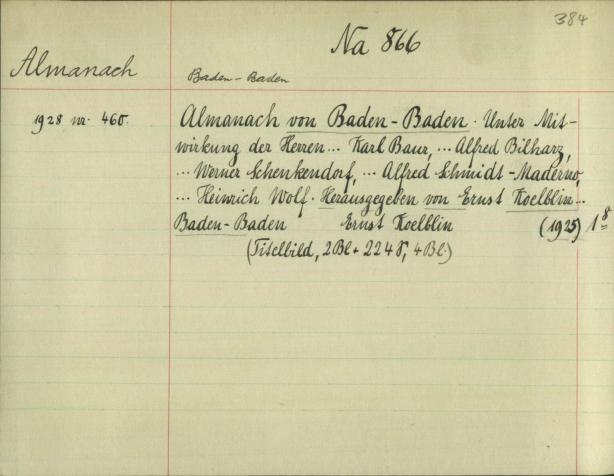 384
Na 866
Almanach
Baden-Baden
1928 nr. 460.
Almanach von Baden-Baden. Unter Mit-
wirkung der Herren... Karl Baur,... Alfred Bilharz,
... Werner Schenkendorf,... Alfred Schmidt-Maderno,
... Heinrich Wolf. Herausgegeben von Ernst Koelblin...
Baden-Baden Ernst Koelblin (1925) 8
(Titelbild, 2Bl+224S, 4Bl.)